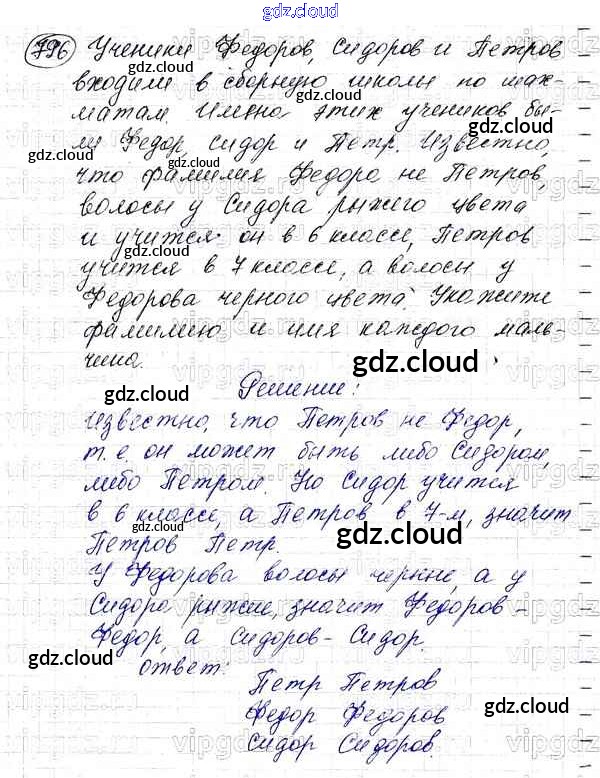 gdz.cloud
796 Ученики Федоров, Сидоров и Петров
входили в сборную школы по шах-
матам. Имена этих учеников бы-
ли Федор, Сидор и Петр. Известно,
что фамилия Федора не Петров,
волосы у Сидора рыжего цвета
и учится он в 6 классе, Петров
учится в 7 классе, а волосы у
Федорова черного цвета. Укажите
фамилию и имя каждого маль-
чика.
Решение:
Известно, что Петров не Федор,
т.е. он может быть либо Сидором,
либо Петром. Но Сидор учится
в 6 классе, а Петров в 7-м, значит
Петров Петр.
У Федорова волосы черные, а у
Сидора рыжие, значит Федоров -
Федор, а Сидоров - Сидор.
Ответ:
Петр Петров
Федор Федоров
Сидор Сидоров.